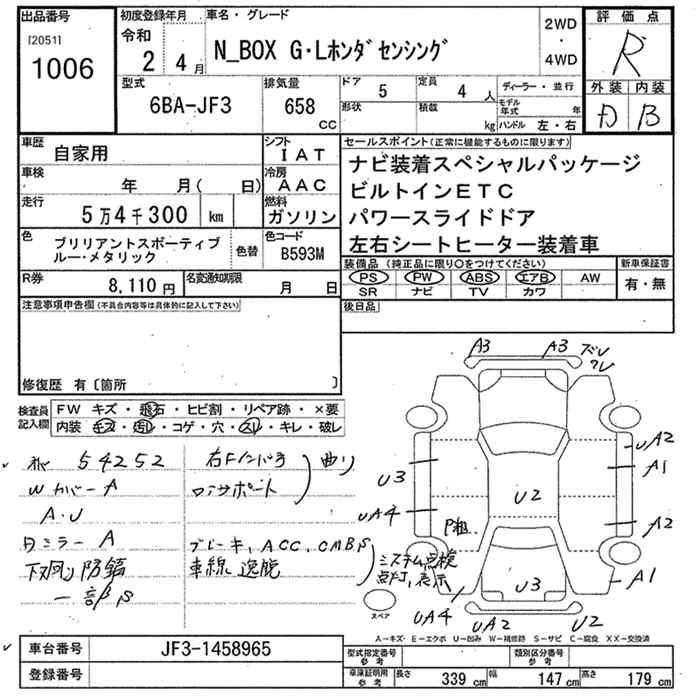 出品番号
[2051]
1006
初度登録年月
令和
2 4月
車名・グレード
N_BOX G・Lホンダセンシング
2WD
・
4WD
評価点
R
外装 内装
B
型式
6BA-JF3
排気量
658
cc
ドア
5
定員
4人
形状
積載
kg
ディーラー・並行
モデル年式 年
ハンドル 左・右
車歴
自家用
シフト
IAT
車検
年 月( 日)
冷房
AAC
走行
5万4千300 km
燃料
ガソリン
色
ブリリアントスポーティブ
ルー・メタリック
色替
色コード
B593M
R券
8,110円
名変通知期限
月 日
セールスポイント(正常に機能するものに限ります)
ナビ装着スペシャルパッケージ
ビルトインETC
パワースライドドア
左右シートヒーター装着車
装備品(純正品に限り○をつけてください)
PS PW ABS エアB AW
SR ナビ TV カワ
新車保証書
有・無
後日品
注意事項申告欄(不具合内容等は具体的に記入して下さい)
修復歴 有〔箇所 〕
検査員
記入欄
FW キズ・飛石・ヒビ割・リペア跡・×要
内装 キズ・汚レ・コゲ・穴・スレ・キレ・破レ
54252
Wカバー A
A・U
ミラー A
下廻り防錆
一部
右Fインパネ
コアサポート
曲リ
ブレーキ, ACC, CMBS
車線逸脱
システム点検
点灯, 表示
A3 A3 ズレ
ワレ
U3
UA4
UA2
A1
U2
A2
P粗
A1
U3
UA4
UA2 U2
スペア
A－キズ E－エクボ U－凹み W－補修跡 S－サビ C－腐食 XX－交換済
車台番号
JF3-1458965
登録番号
型式指定番号
参考
類別区分番号
参考
車庫証明用
参考
長さ 339 cm 幅 147 cm 高さ 179 cm